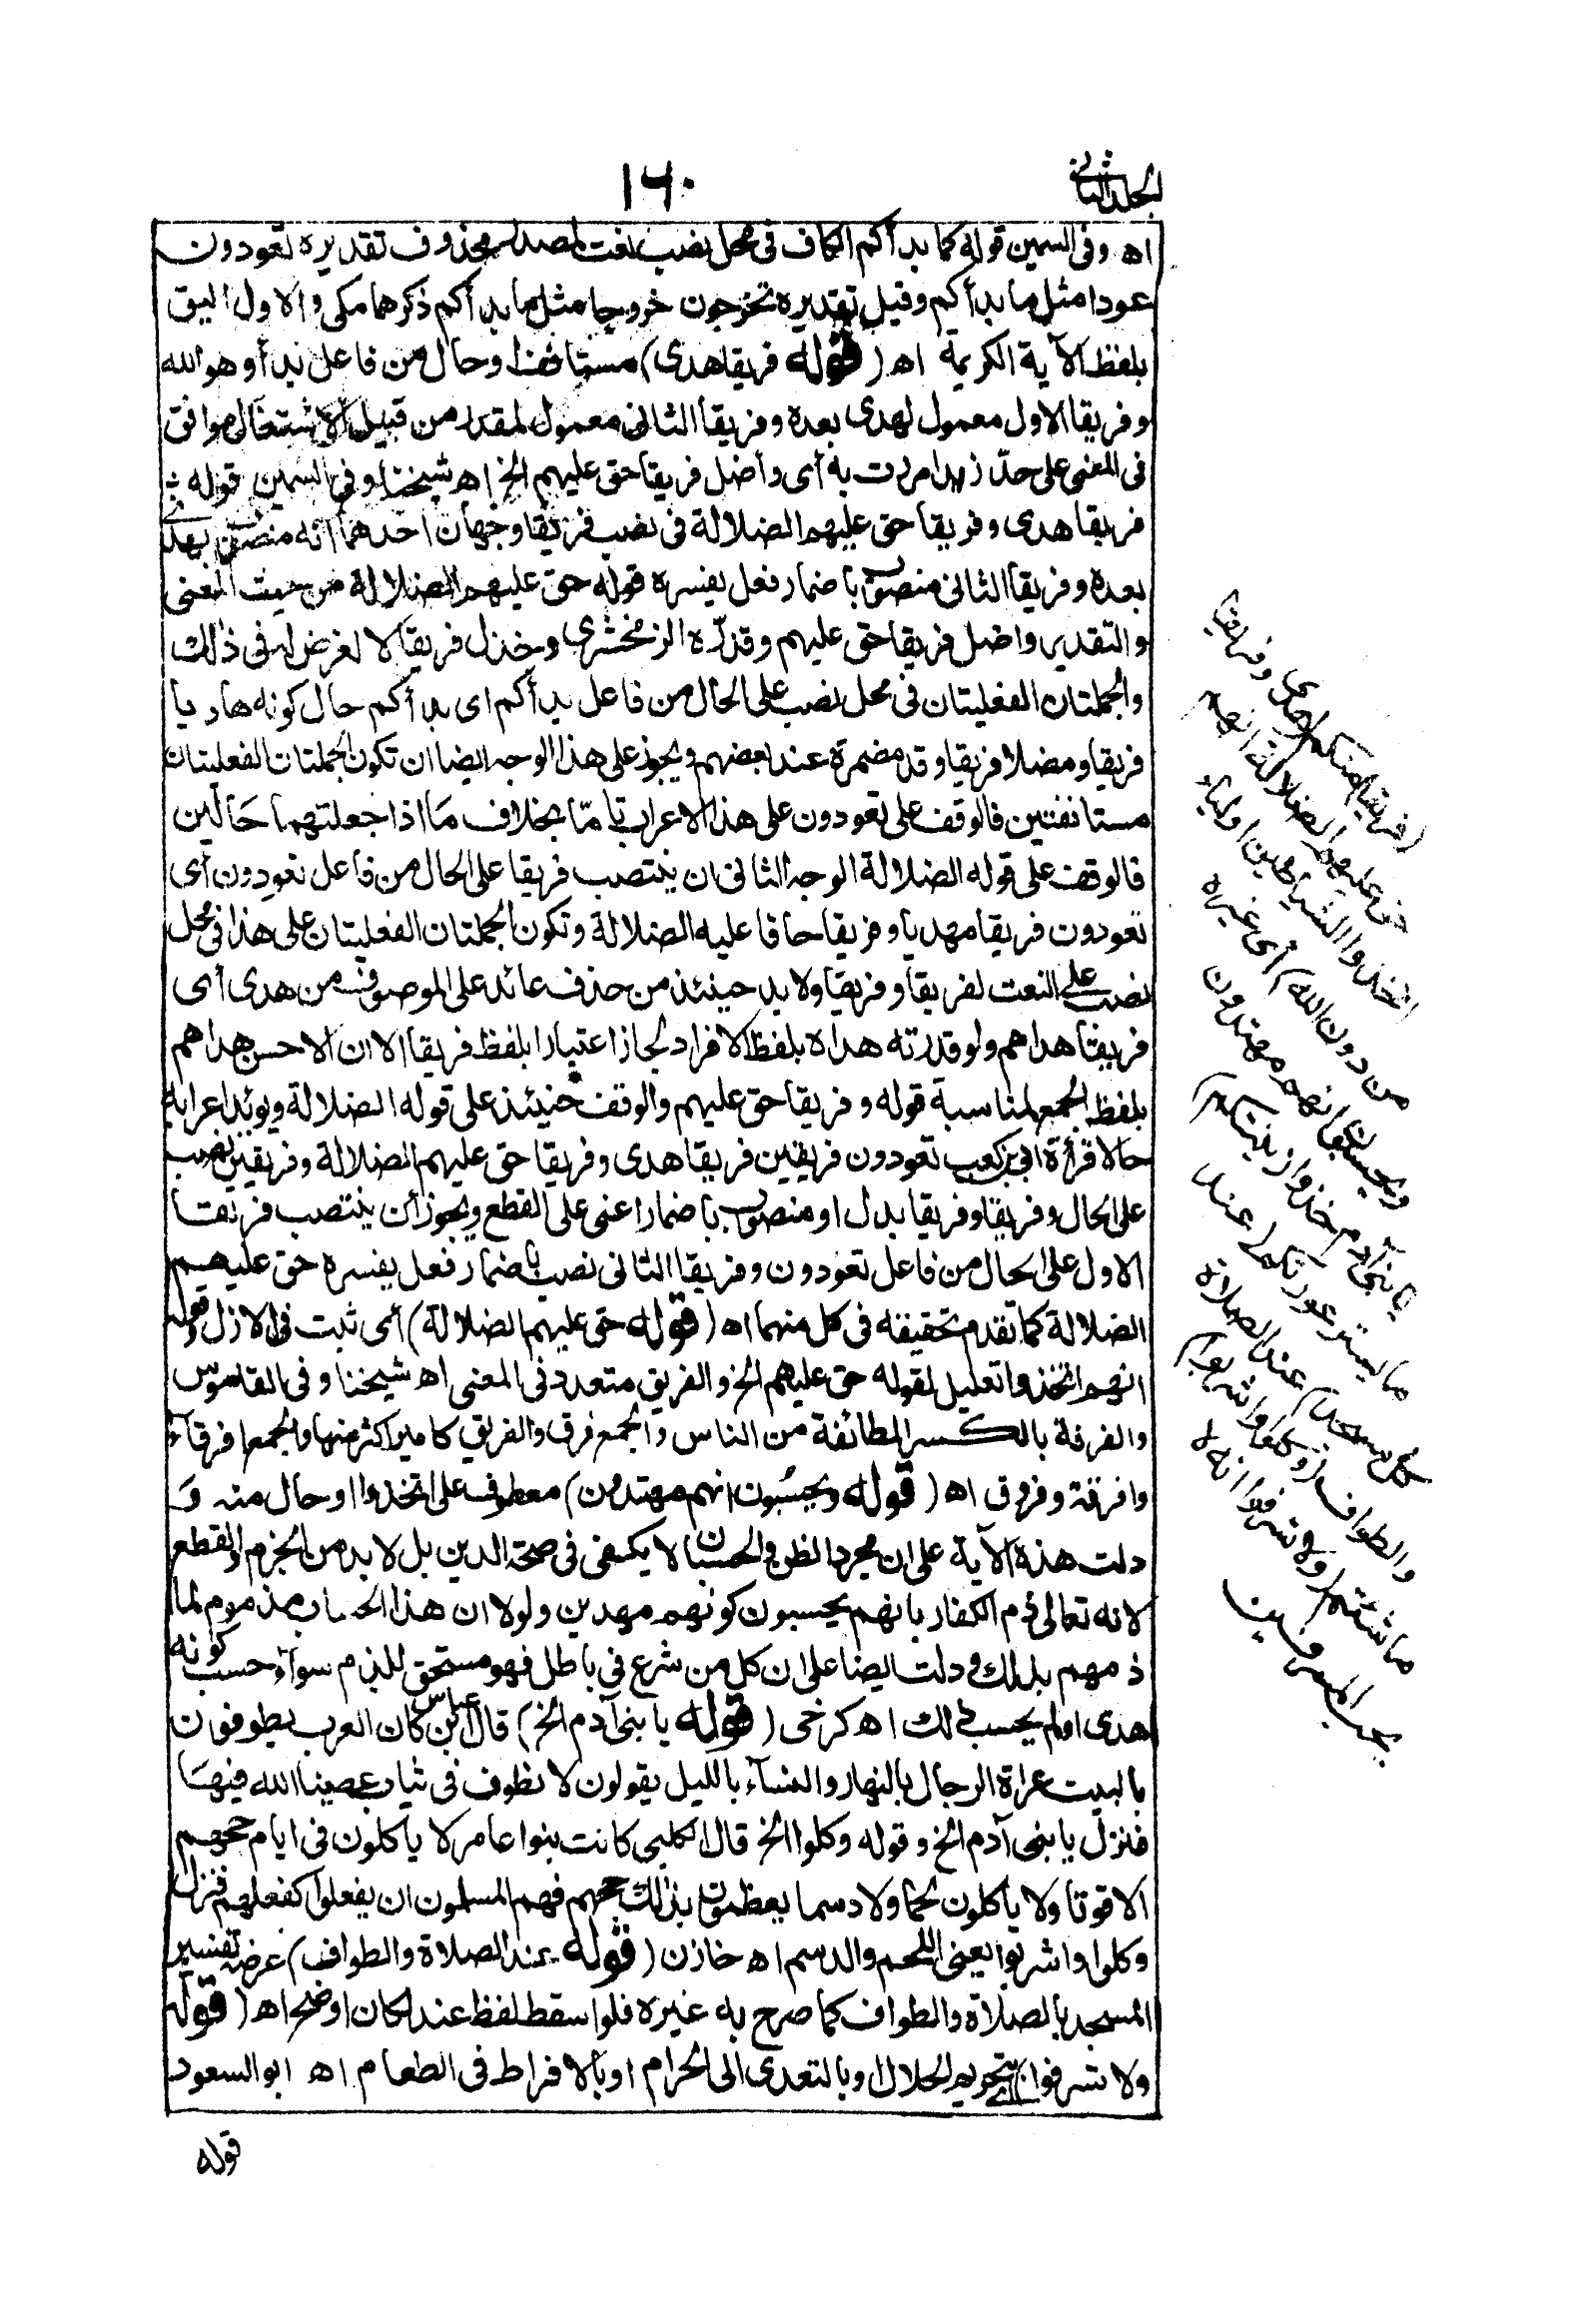 الجلد الثانى
١٦٠
اه وفى السمين قوله كما بدأكم الكاف فى محل نصب نعت لمصدر محذوف تقديره تعودون
عودا مثل ما بدأكم وقيل تقديره تخرجون خروجا مثل ما بدأكم ذكرهما مكى والاول اليق
بلفظ الآية الكريمة اه (قوله فريقا هدى) مستانف او حال من فاعل بدأ وهو الله
وفريقا الاول معمول لهدى بعده وفريقا الثانى معمول لمقدر من قبيل الاشتغال موافق
فى المعنى على حد زيدا مررت به أى وأضل فريقا حق عليهم الخ اه شيخنا وفى السمين قوله
فريقا هدى وفريقا حق عليهم الضلالة فى نصب فريقا وجهان احدهما انه منصوب بهدى
بعده وفريقا الثانى منصوب باضمار فعل يفسره قوله حق عليهم الضلالة من حيث المعنى
والتقدير واضل فريقا حق عليهم وقدره الزمخشرى وخذل فريقا لا لغرض له فى ذلك
والجملتان الفعليتان فى محل نصب على الحال من فاعل بدأكم اى بدأكم حال كونه هاديا
فريقا ومضلا فريقا وقد مضمرة عند بعضهم ويجوز على هذا الوجه ايضا ان تكون الجملتان الفعليتان
مستانفتين فالوقف على تعودون على هذا الاعراب تامّا بخلاف ما اذا جعلتهما حالين
فالوقف على قوله الضلالة الوجه الثانى ان ينتصب فريقا على الحال من فاعل تعودون أى
تعودون فريقا مهديا وفريقا حاقا عليه الضلالة وتكون الجملتان الفعليتان على هذا فى محل
نصب على النعت لفريقا وفريقا ولا بد حينئذ من حذف عائد على الموصوف من هدى أى
فريقا هداهم ولو قدرته هداه بلفظ الافراد لجاز اعتبارا بلفظ فريقا الا ان الاحسن هداهم
بلفظ الجمع لمناسبة قوله وفريقا حق عليهم والوقف حينئذ على قوله الضلالة ويؤيد اعرابه
حالا قرأة ابى بن كعب تعودون فريقين فريقا هدى وفريقا حق عليهم الضلالة وفريقين نصب
على الحال وفريقا وفريقا بدل او منصوب باضمار اعنى على القطع ويجوز أن ينتصب فريقا
الاول على الحال من فاعل تعودون وفريقا الثانى نصب باضمار فعل يفسره حق عليهم
الضلالة كما تقدم تحقيقه فى كل منهما اه (قوله حق عليهم الضلالة) أى ثبت فى الازل وقوله
انهم اتخذوا تعليل لقوله حق عليهم الخ والفريق متعدد فى المعنى اه شيخنا وفى القاموس
والفرقة بالكسر الطائفة من الناس والجمع فرق والفريق كامير اكثر منها والجمع افرقآء
وافرقة وفروق اه (قوله ويحسبون انهم مهتدون) معطوف على اتخذوا او حال منه و
دلت هذه الآية على ان مجرد الظن والحسبان لا يكفى فى صحة الدين بل لا بد من الجزم والقطع
لانه تعالى ذم الكفار بانهم يحسبون كونهم مهدين ولولا ان هذا الحسبان مذموم لما
ذمهم بذلك ودلت ايضا على ان كل من شرع فى باطل فهو مستحق للذم سوآء حسب كونه
هدى او لم يحسب ذلك اه كرخى (قوله يا بنى آدم الخ) قال ابن عباس كان العرب يطوفون
بالبيت عراة الرجال بالنهار والنسآء بالليل يقولون لا نطوف فى ثياب عصينا الله فيها
فنزل يا بنى آدم الخ وقوله وكلوا الخ قال الكلبى كانت بنوا عامر لا ياكلون فى ايام حجهم
الا قوتا ولا ياكلون لحما ولا دسما يعظمون بذلك حجهم فهم المسلمون ان يفعلوا كفعلهم فنزل
وكلوا واشربوا يعنى اللحم والدسم اه خازن (قوله عند الصلاة والطواف) غرضه تفسير
المسجد بالصلاة والطواف كما صرح به غيره فلو اسقط لفظ عند لكان اوضح اه (قوله
ولا تسرفوا) بتحريم الحلال او بالتعدى الى الحرام او بالافراط فى الطعام اه ابو السعود
قوله
(فريقا) منكم (هدى وفريقا
حق عليهم الضلالة انهم
اتخذوا الشياطين اولياء
من دون الله) أى غيره
ويحسبون انهم مهتدون
يا بنى آدم خذوا زينتكم)
ما يستر عورتكم (عند
كل مسجد) عند الصلاة
والطواف (وكلوا واشربوا)
ما شئتم (ولا تسرفوا انه لا
يحب المسرفين